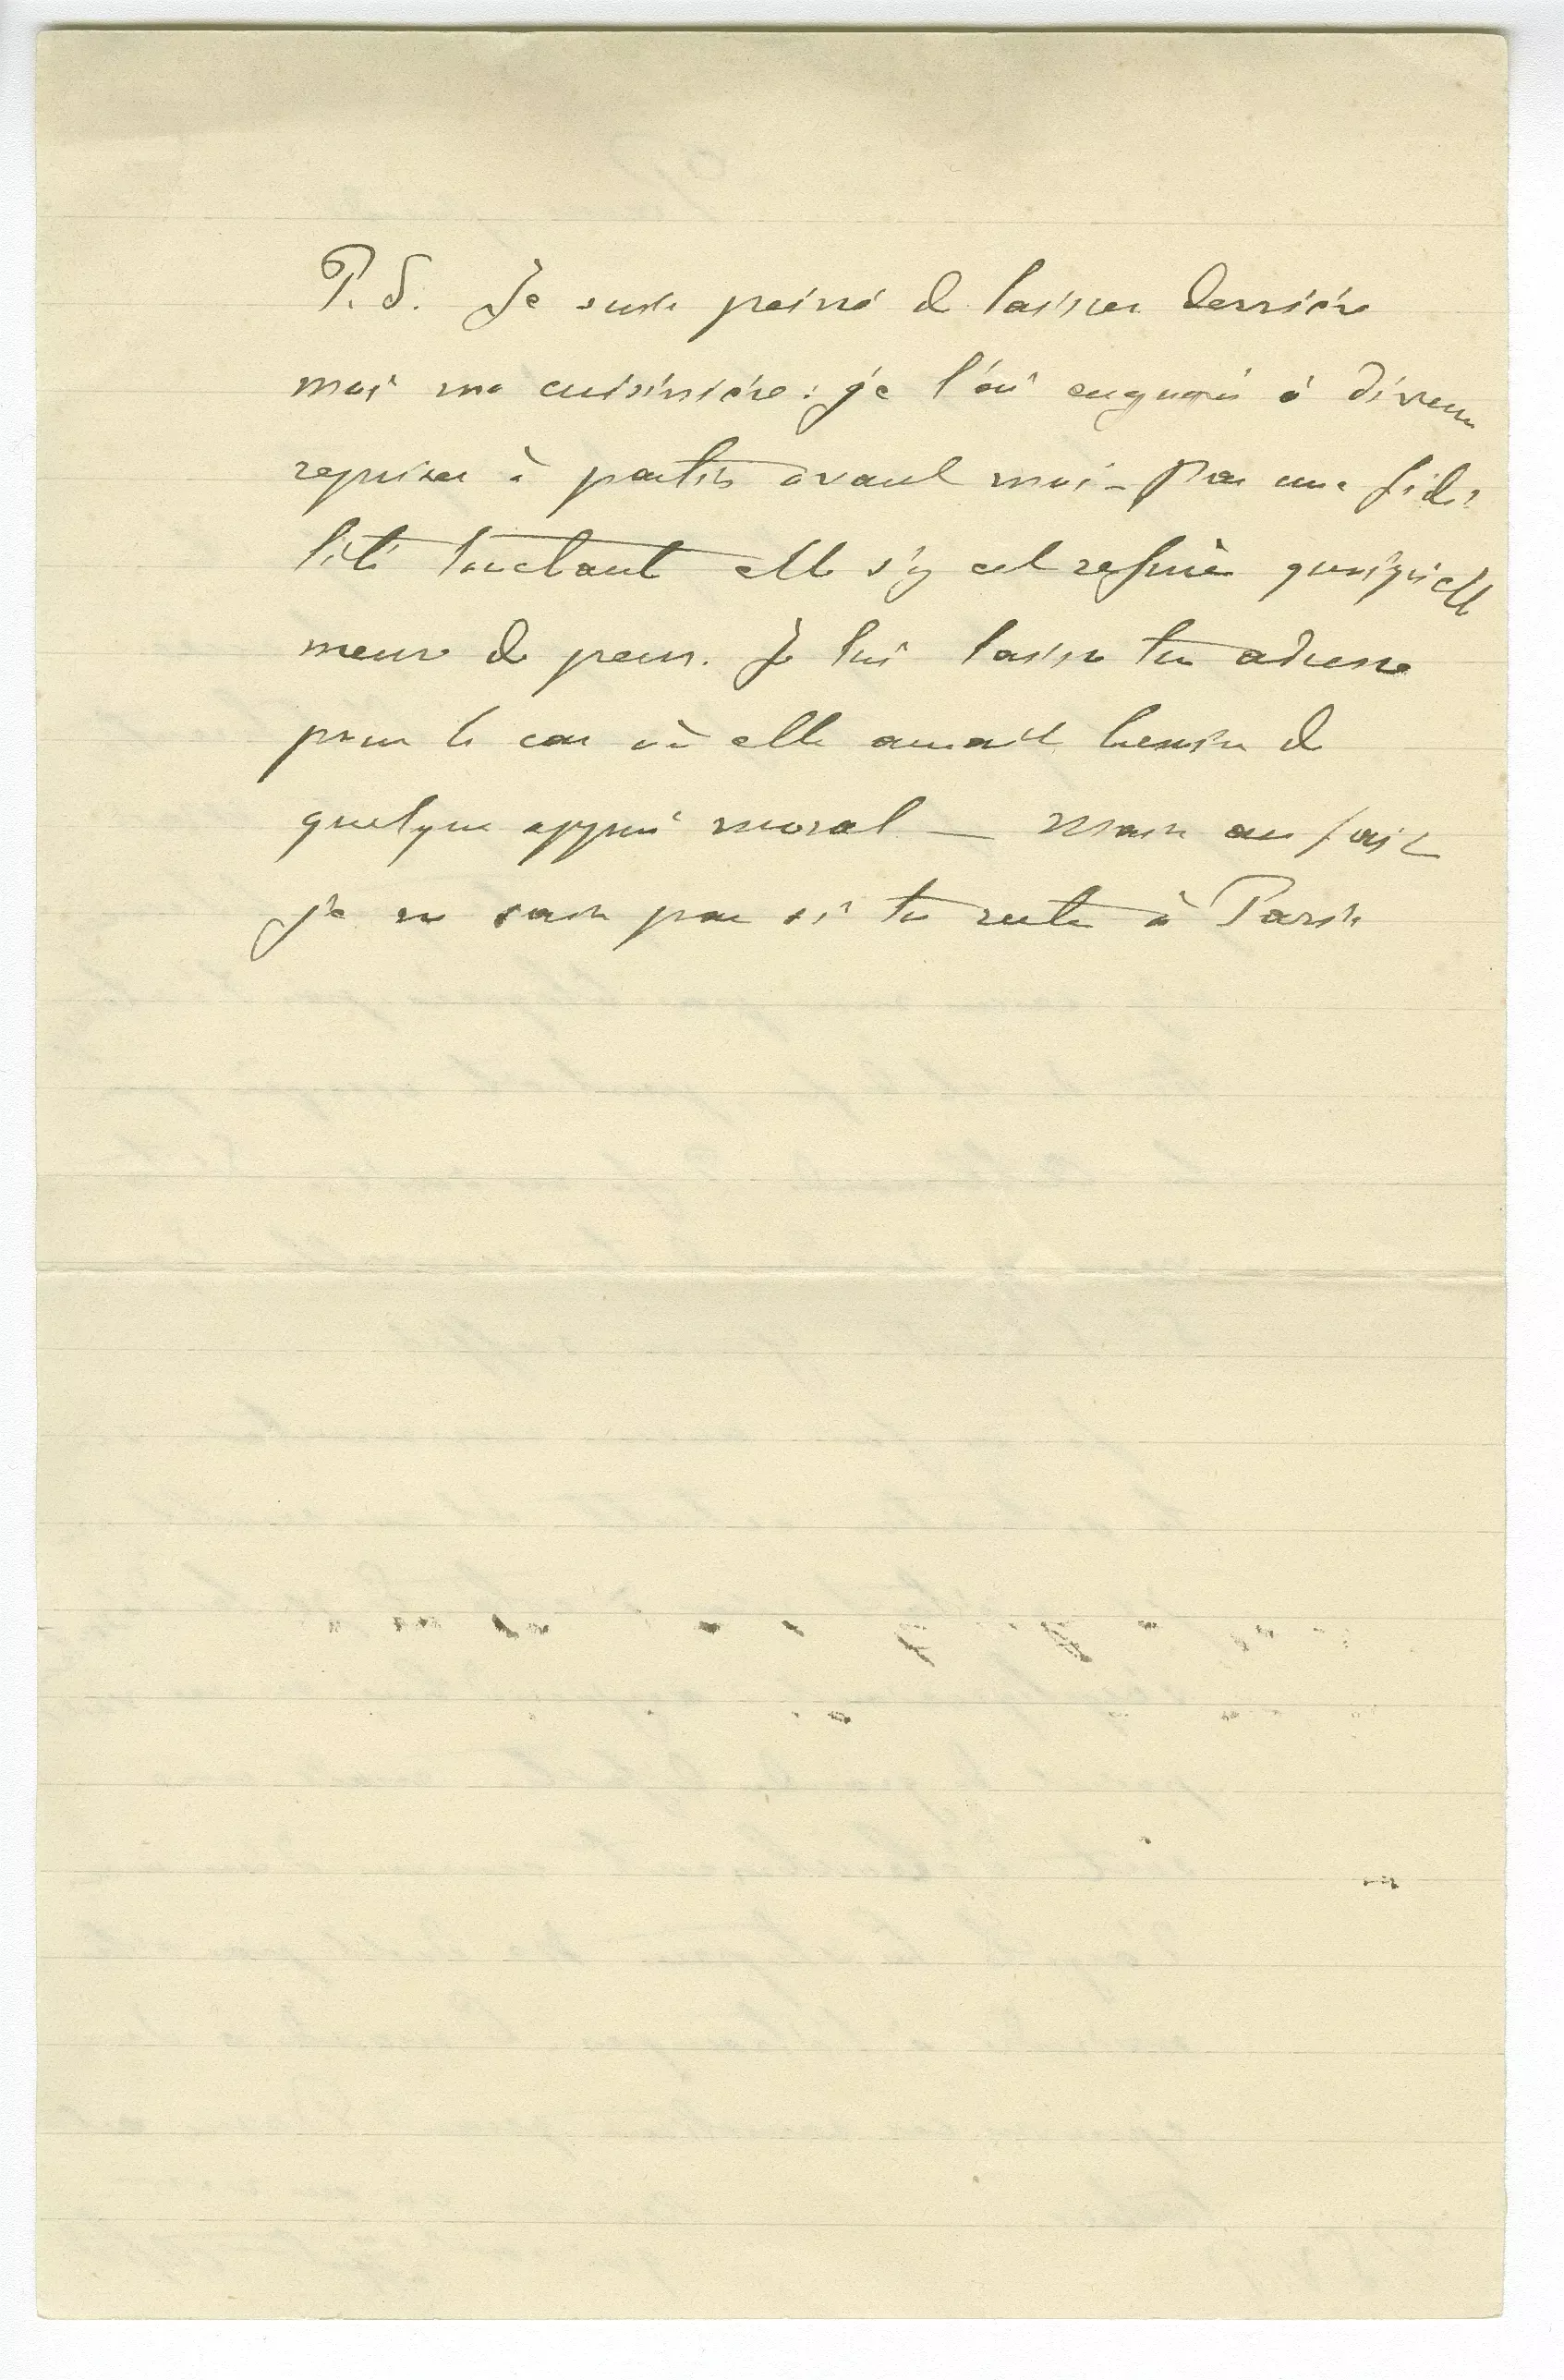 P. S. Je suis peiné de laisser derrière
moi ma cuisinière : je l'ai engagée à diverses
reprises à partir avant moi – Par une fidé
lité touchante elle s'y est refusée quoiqu'elle
meure de peur. Je lui laisse ton adresse
pour le cas où elle aurait besoin de
quelque appui moral — Mais au fait
je ne sais pas si tu restes à Paris